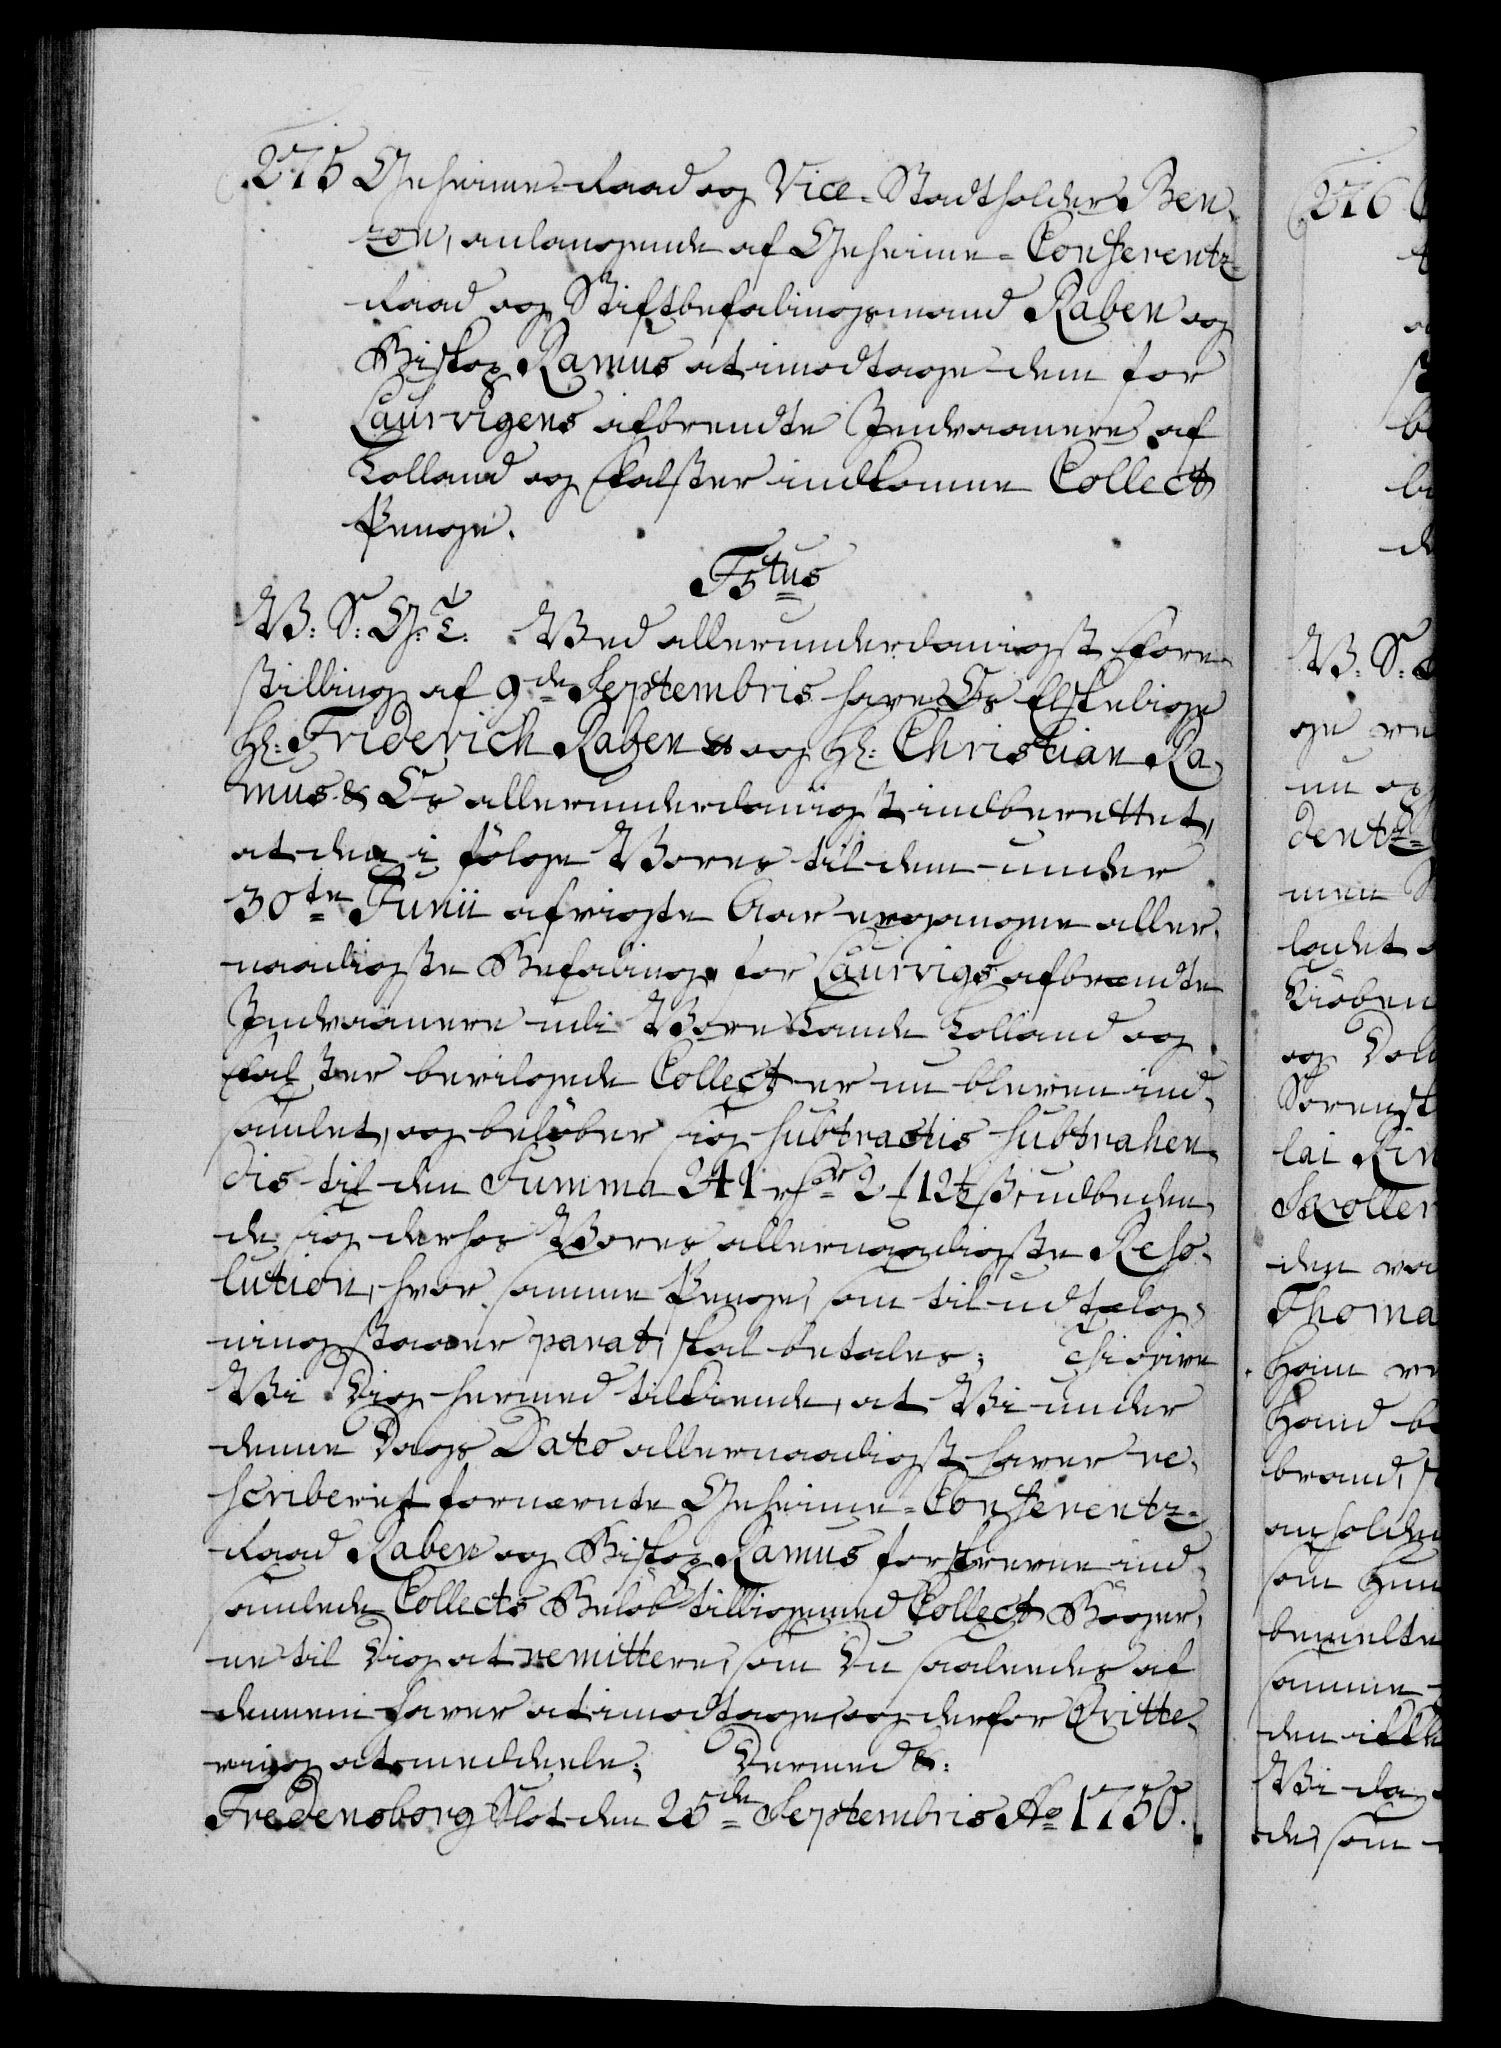 275 Geheime-Raad og Vice-Stadtholder Ben-
zon, anlangende af Geheime-Conferentz-
Raad og Stiftbefalingsmand Raben og
Biskop Ramus at imodtage dem for
Laurvigens afbrendte Indvaanere af
Lolland og Falster indkomne Collect
Penge.
F5tus
V: S: G: T: Ved allerunderdanigst Fore-
stilling af 9de Septembris have Os Elskelige
Hr: Friderich Raben & og Hr: Christian Ra-
mus & Os allerunderdanigst indberettet,
at den i følge Vores til dem under
30te Junii afvigte Aar ergangne aller-
naadigste Befaling for Laurvigs afbrendte
Indvaanere udi Vore Lande Lolland og
Falster bevilgede Collect er nu bleven ind-
samlet, og beløber sig subtractis subtrahen-
dis til den Summa 241 rdr 2 12½ ß, udbeden-
de sig derhos Vores allernaadigste Reso-
lution, hvor samme Penge, som til udtælg-
ning staaer parat, skal betales; Thi give
Vi Dig hermed tilkiende, at Vi under
denne Dags Dato allernaadigst haver re-
scriberet fornævnte Geheime-Conferentz-
Raad Raben og Biskop Ramus forskrevne ind-
samlede Collects Beløb tilligemed Collect Bøger-
ne til Dig at remittere, som Du saaledes af
dennem haver at imodtage, og derfor Qvitte-
ring at meddeele; Dermed &:
Fredensborg Slot den 25de Septembris Ao 1750.
276
V. S.
dentz-
men
ladet
Kiøben
og
Sørens
lai Rin
den
Thoma
ham
Haand
brand,
anholden
som
bemelte
samme
den
Vi da
de, som